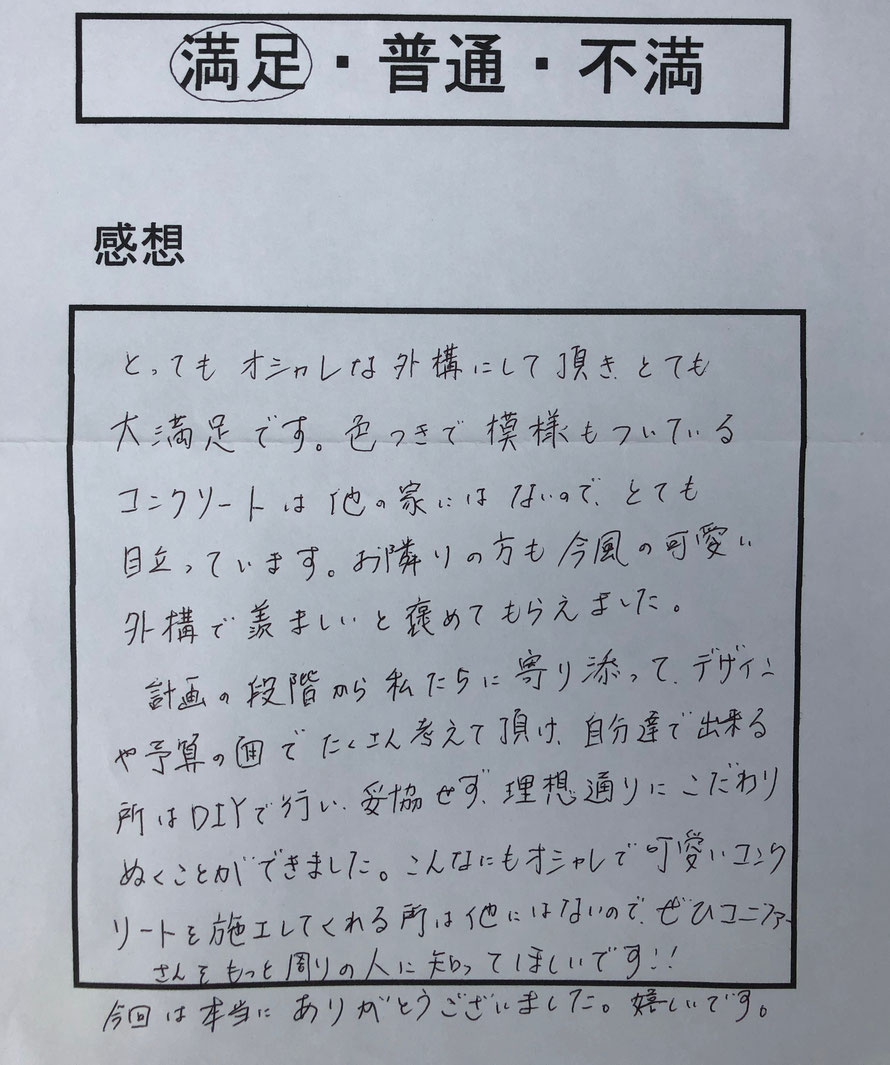 満足・普通・不満
感想
とってもオシャレな外構にして頂き、とても
大満足です。色つきで模様もついている
コンクリートは他の家にはないので、とても
目立っています。お隣りの方も今風の可愛い
外構で羨ましいと褒めてもらえました。
計画の段階から私たちに寄り添って、デザイン
や予算の面でたくさん考えて頂け、自分達で出来る
所はDIYで行い、妥協せず、理想通りにこだわり
ぬくことができました。こんなにもオシャレで可愛いコンク
リートを施工してくれる所は他にはないので、ぜひコニファー
さんをもっと周りの人に知ってほしいです!!
今回は本当にありがとうございました。嬉しいです。